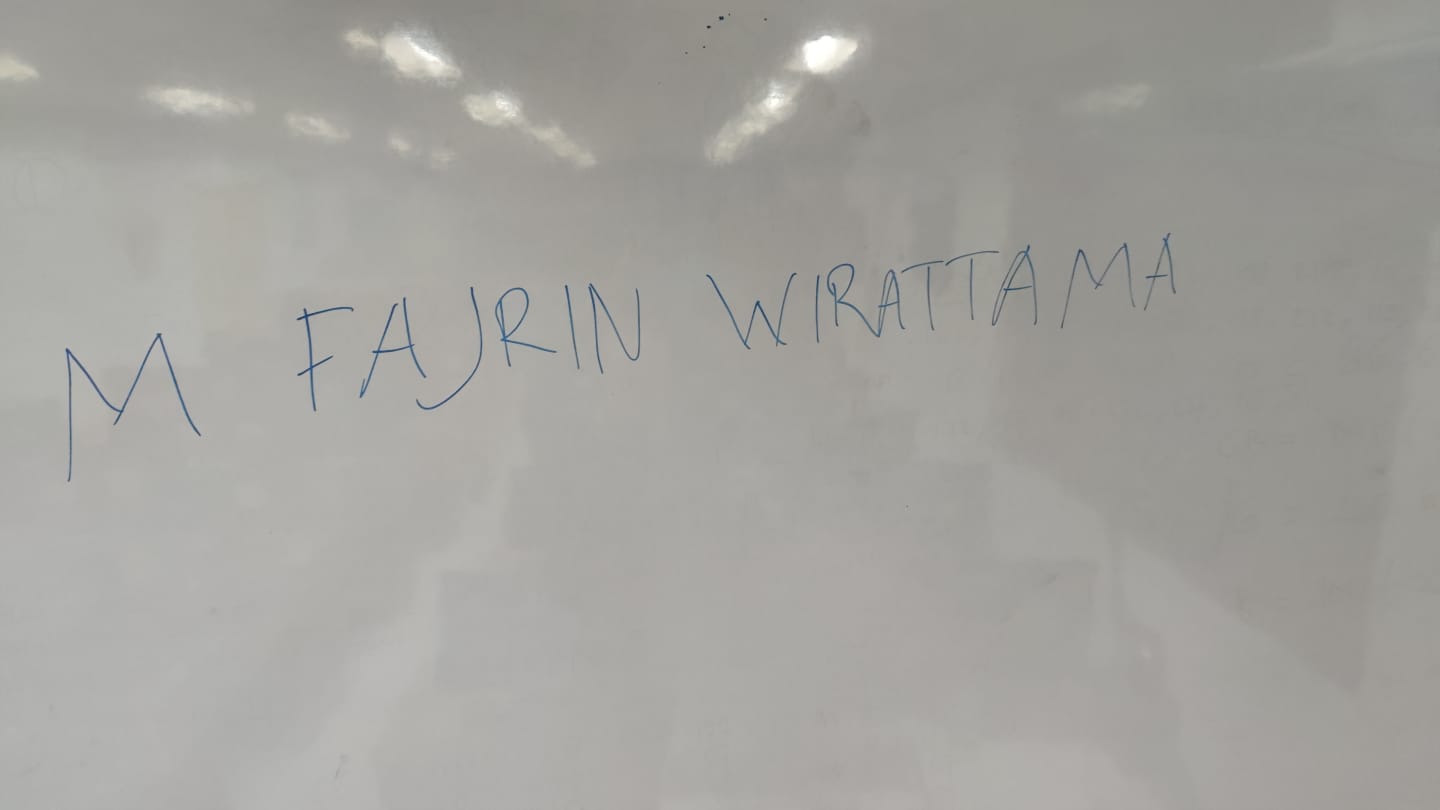 M FAJRIN WIRATTAMA